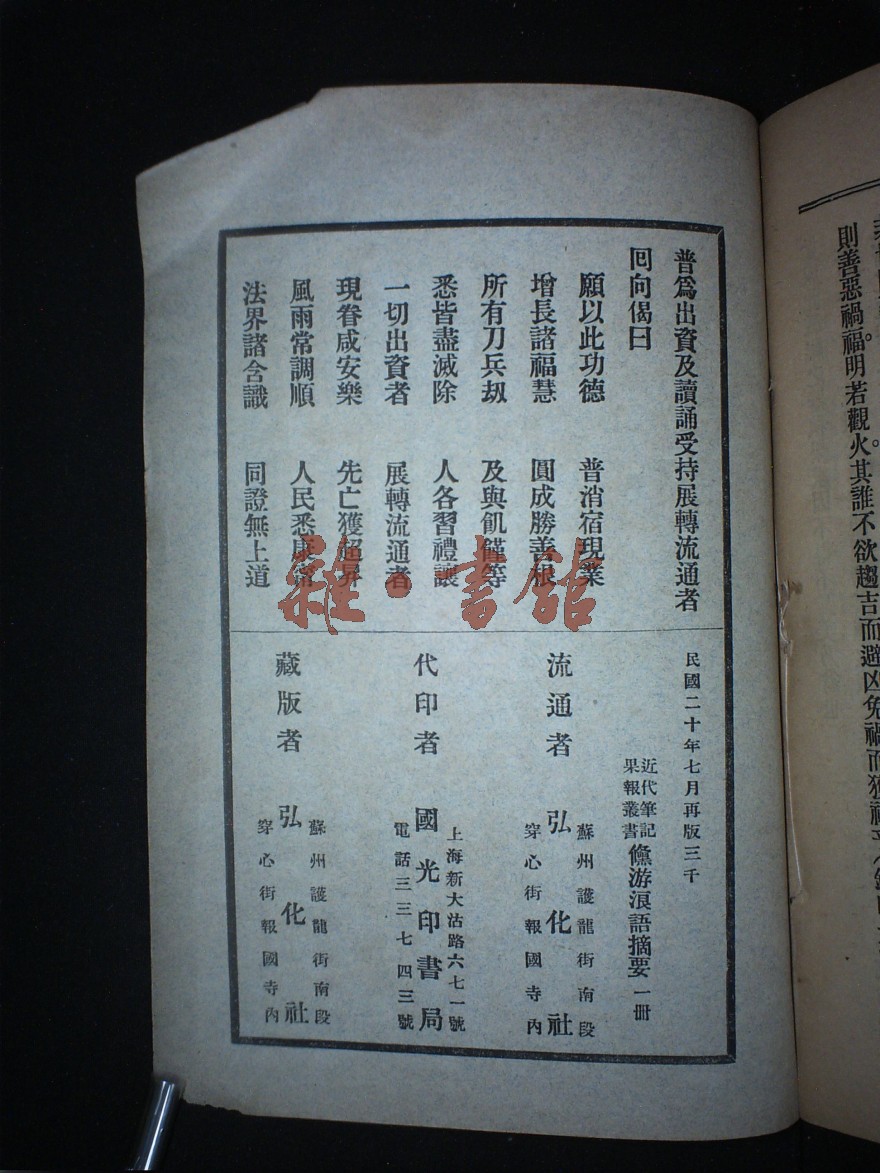 普爲出資及讀誦受持展轉流通者
囘向偈曰
願以此功德　普消宿現業
增長諸福慧　圓成勝善根
所有刀兵劫　及與飢饉等
悉皆盡滅除　人各習禮讓
一切出資者　展轉流通者
現眷咸安樂　先亡獲超昇
風雨常調順　人民悉康甯
法界諸含識　同證無上道
民國二十年七月再版三千
近代筆記果報叢書 儵游浪語摘要 一册
流通者
弘化社
蘇州護龍街南段
穿心街報國寺內
代印者
國光印書局
上海新大沽路六七一號
電話三三七四三號
藏版者
弘化社
蘇州護龍街南段
穿心街報國寺內
則善惡禍福。明若觀火。其誰不欲趨吉而避凶免禍而獲福
雜·書館